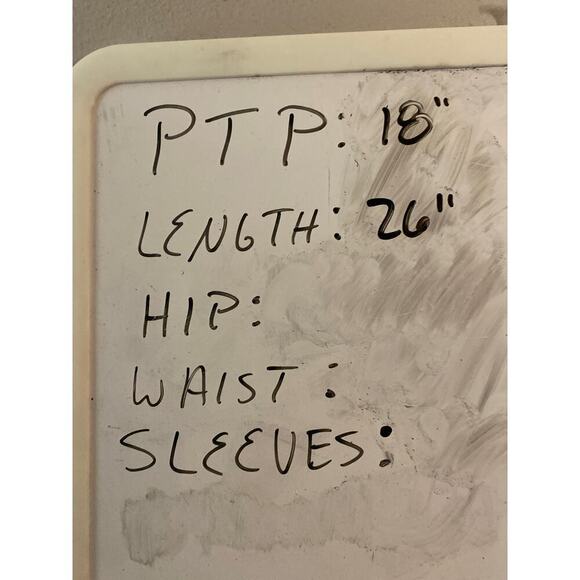 PTP: 18"
LENGTH: 26"
HIP:
WAIST:
SLEEVES: